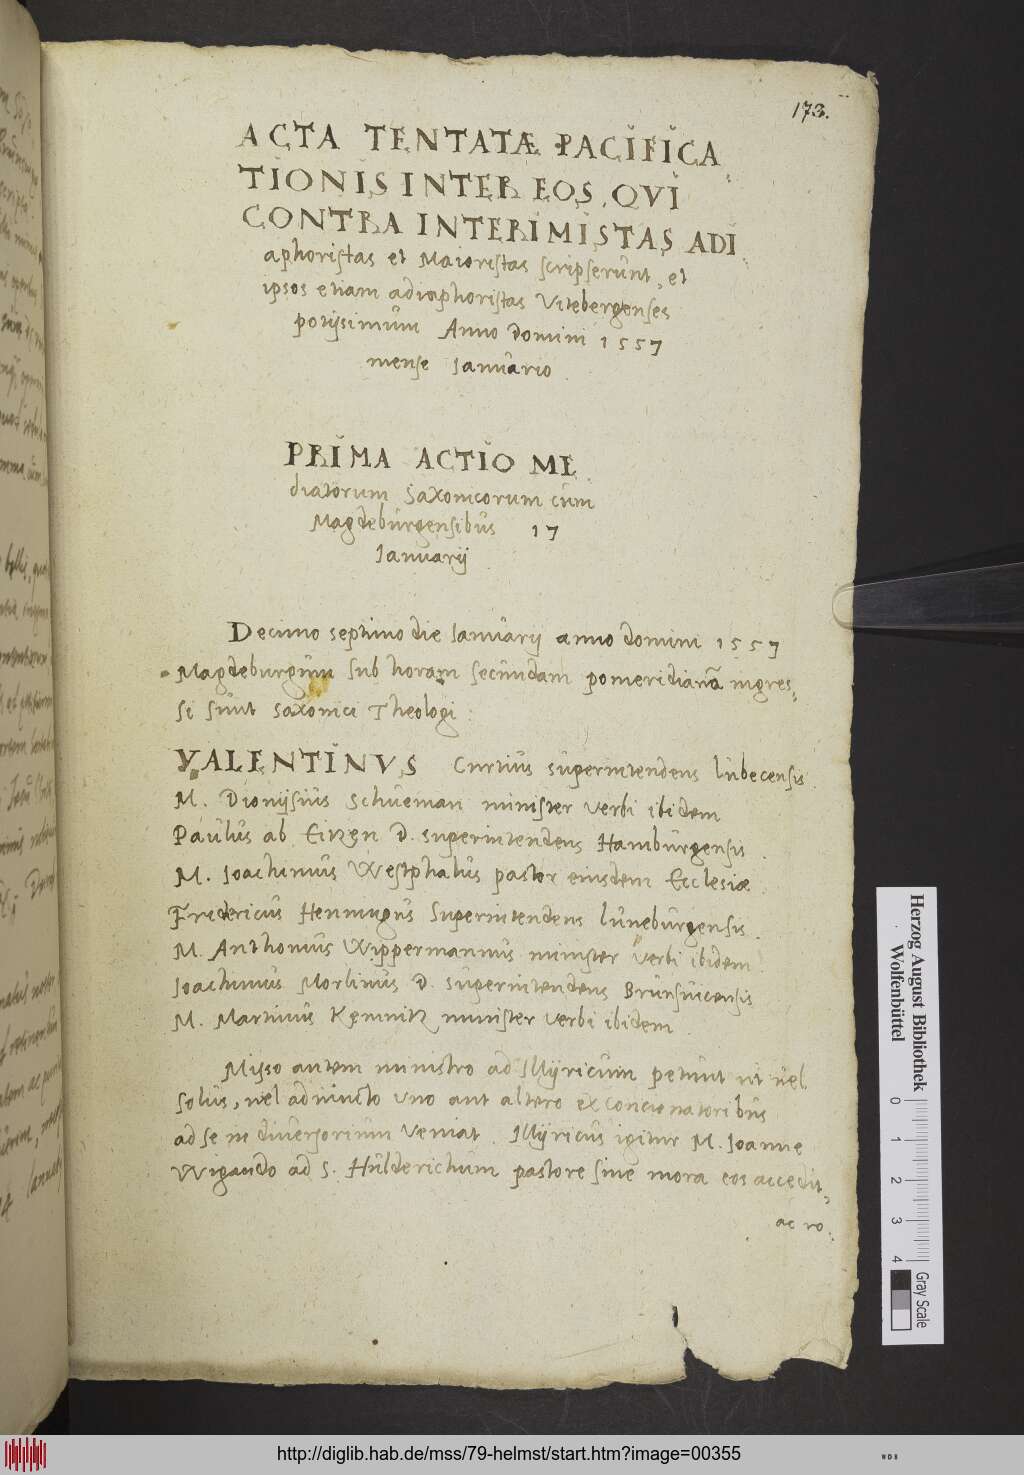 173.
ACTA TENTATÆ PACIFICA
TIONIS INTER EOS, QVI
CONTRA INTERIMISTAS ADI
aphoristas et Maioristas scripserunt, et
ipsos etiam adiaphoristas Vitebergenses
potijsimùm Anno Domini 1557
mense Ianuario
PRIMA ACTIO ME
diatorum Saxonicorum cùm
Magdeburgensibus 17
Ianuarij
Decimo septimo die Ianuarij anno domini 1557
Magdeburgum sub horam secundam pomeridianã ingres-
si sunt Saxonici Theologi:
VALENTINVS Curtius superintendens lubecensis.
M. Dionijsius Schueman minister verbi ibidem
Paulus ab Eitzen D. superintendens Hamburgensis.
M. Ioachimus Westphalus pastor eiusdem Ecclesiæ.
Fredericus Henningus superintendens luneburgensis.
M. Anthonius Wippermannus minister verbi ibidem.
Ioachimus Morlinus D. superintendens Brunsuicensis
M. Martinus Kemnitz minister verbi ibidem.
Misso autem ministro ad Illijricum petunt ut uel
solus, uel adiuncto uno aut altero ex concionatoribus
ad se in diuersorium veniat. Illijricus igitur M. Ioanne
Wigando ad S. Hulderichum pastore sine mora eos accedit,
ac ro-
Herzog August Bibliothek
Wolfenbüttel
0 1 2 3 4
Gray Scale
http://diglib.hab.de/mss/79-helmst/start.htm?image=00355